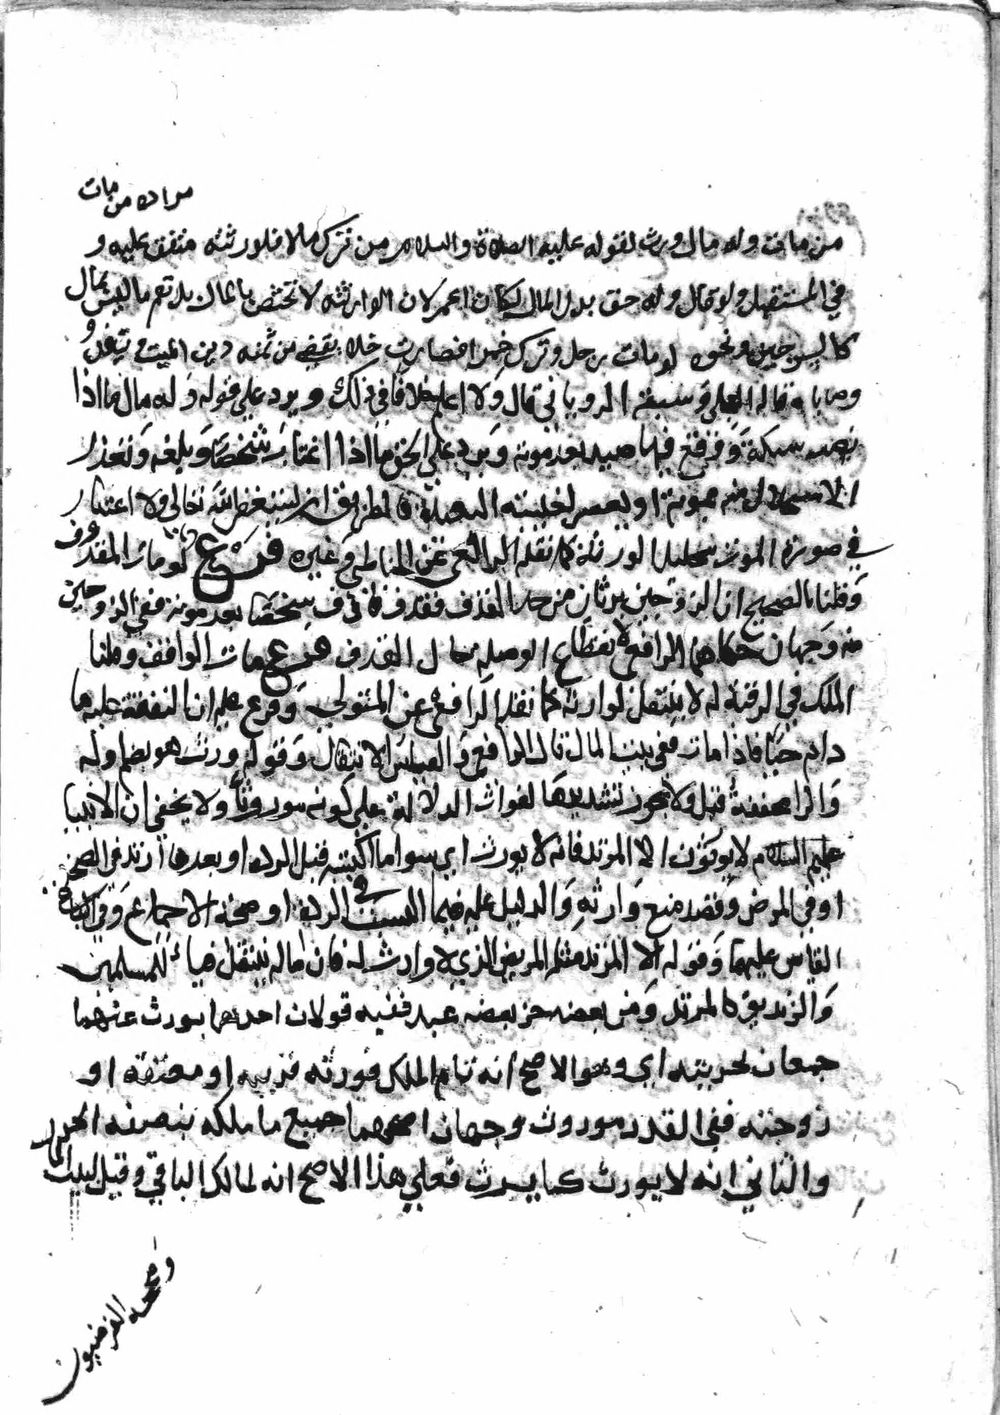 مراده من مات
من مات وله مال ورث لقوله عليه الصلاة والسلام من ترك مالا فلورثته متفق عليه و
في المستقبل ولو قال وله حق بدل المال لكان اعم لان الوارثة لا تختص بالمال بل تعم ما ليس بمال
كالسرجين ونحوه لو مات رجل وترك خمرا فصارت خلا يقضى من ثمنه دين الميت و تنفذ و
وصاياه قاله العجلي وسبقه الروياني قال ولا اعلم خلافا في ذلك ويرد علي قوله وله مال ما اذا
نصب شبكة ووقع فيها صيد بعد موته ويرد علي الحق ما اذا اغتاب شخصا وبلغه وتعذر
الاستحلال منه بموته او تعسر لغيبته البعيدة فالطريق ان يستغفر الله تعالي ولا اعتبار
في صورة الموت بتحليل الورثة كما نقله الرافعي عن الحناطي وغيره فرع لو مات المقذوف
وقلنا بالصحيح ان الزوجين يرثان من حد القذف فقذف قاذف شخصا بعد موته ففي الزوجين
منه وجهان حكاهما الرافعي لانقطاع الوصلة حال القذف فرع مات الواقف وقلنا
الملك في الرقبة له لا ينتقل لوارثه كما نقله الرافعي عن المتولي وفرع عليه ان النفقة عليه ما
دام حيا فاذا مات ففي بيت المال قال الرافعي والقياس الانتقال وقوله ورث هو بضم اوله
والراء مخففة قيل ولا يجوز تشديدها لفوات الدلالة علي كونه موروثا ولا يخفي ان الانبيا
عليهم السلام لا يورثون الا المرتد فانه لا يورث اي سواما اكتسبه قبل الردة او بعدها ارتد في الصحة
او في المرض وقصد منع وارثه والدليل عليه فيما اكتسب في الردة او صحته الاجماع وفي الباقي
القياس عليهما وقوله الا المرتد مثله المريض الذي لا وارث له فان ماله ينتقل فيا للمسلمين
والزنديق كالمرتد ومن بعضه حر بعضه عبد ففيه قولان احدهما يورث عنه ما
جمعه لحريته اي وهو الاصح انه تام الملك فورثه قريبه او معتقه او
زوجته ففي القدر موروث وجهان اصحهما جميع ما ملكه بنصفه الحر
والثاني انه لا يورث كما لا يرث فعلي هذا الاصح انه لمالك الباقي وقيل لبيت المال
وصححه الفرضيون